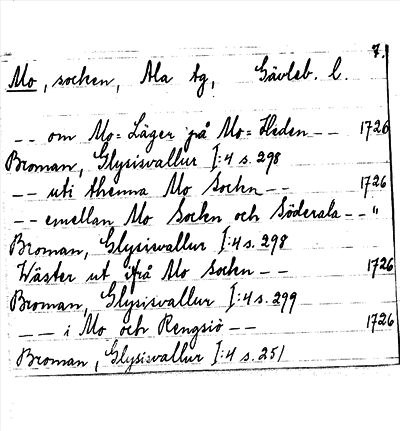 7.
Mo, socken, Ala tg, Gävleb. l.
-- om Mo=Läger på Mo=Heden -- 1726
Broman, Glysisvallur I:4 s. 298
-- uti thenna Mo Sockn -- 1726
-- emellan Mo Sockn och Söderala -- "
Broman, Glysisvallur I:4 s. 298
Wäster ut ifrå Mo Sockn -- 1726
Broman, Glysisvallur I:4 s. 299
-- -- i Mo och Rengsiö -- 1726
Broman, Glysisvallur I:4 s. 251